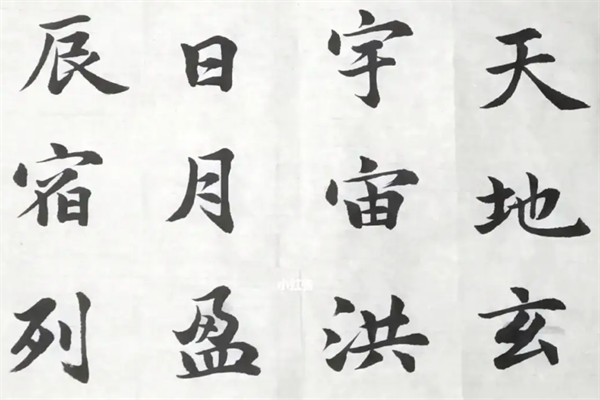 天地玄
宇宙洪
日月盈
辰宿列
小红书